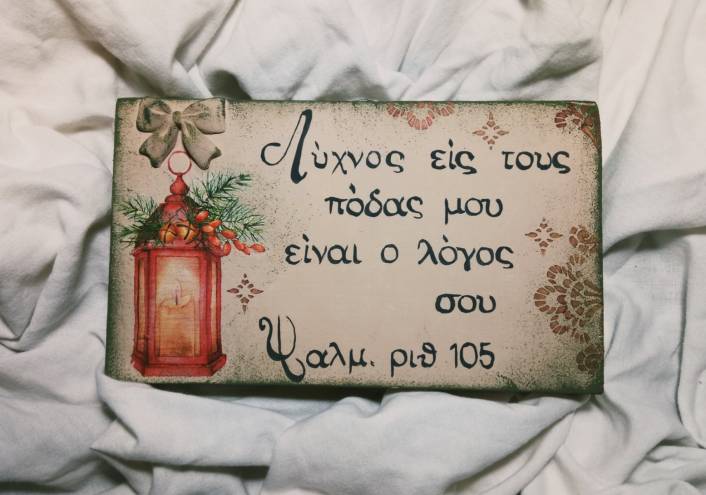 Λύχνος εἰς τους
πόδας μου
εἰναι ο λόγος
σου
Ψαλμ. ριθ 105